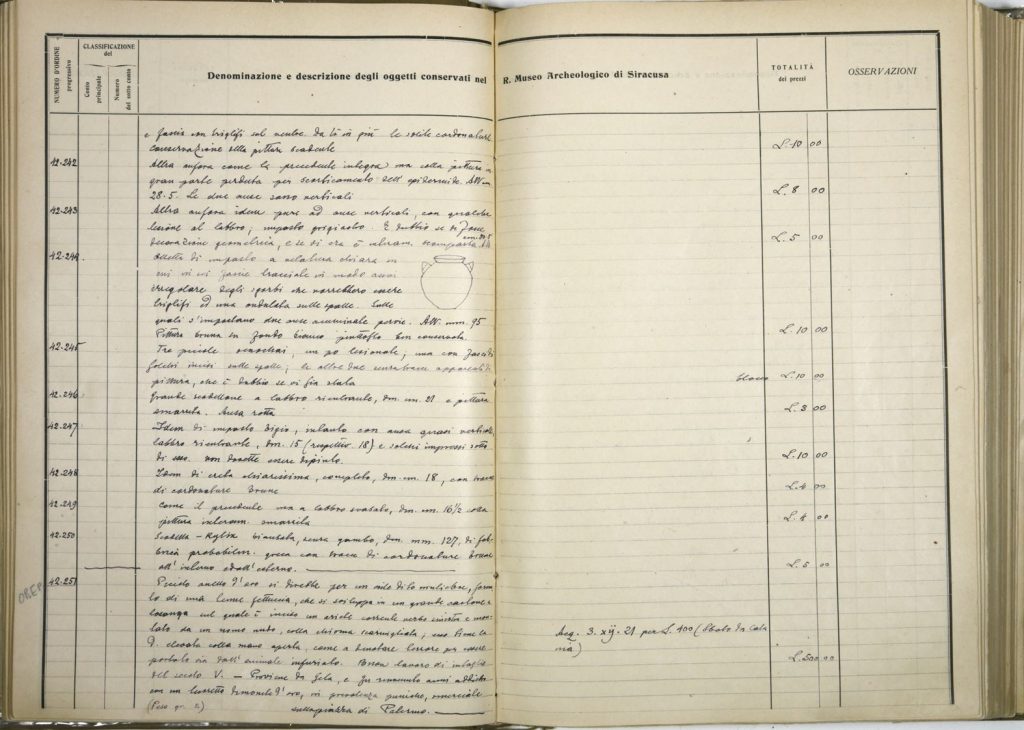 NUMERO D'ORDINE progressivo
CLASSIFICAZIONE del
Conto principale
Numero del sotto conto
Denominazione e descrizione degli oggetti conservati nel R. Museo Archeologico di Siracusa
TOTALITÀ dei prezzi
OSSERVAZIONI
e fascia con triglifi sul ventre. Da lì in giù le solite cordonature
conservazione della pittura scadente L. 10 00
42.242 Altra anfora come la precedente integra, ma colla pittura in
gran parte perduta per scorticamento dell'epidermide. Alt. mm
28.5. Le due anse sono verticali L. 8 00
42.243 Altra anfora idem pure ad anse verticali, con qualche
lesione al labbro; impasto grigiastro. È dubbio se vi fosse
decorazione geometrica, e se vi era è interam. scomparsa L. 5 00
42.244 di impasto a velatura chiara in
cui vi vi fascie tracciate in modo assai
irregolare degli sgorbi che vorrebbero essere
triglifi ed una ondulata sulle spalle. Sulle
quali s'impostano due anse acuminate pervie. Alt. mm. 95
Pittura bruna su fondo bianco piuttosto ben conservata. L. 10 00
42.245 Tre piccole oenochoai, un po lesionate; una con fascie di
solchi incisi sulle spalle; le altre due senza tracce apparenti di
pittura, che è dubbio se vi sia stata blocco L. 10 00
42.246 Grande scodellone a labbro rientrante, dm. cm. 21 e pittura
smarrita. Ansa rotta L. 3 00
42.247 Idem di impasto bigio, intatto con ansa quasi verticale,
labbro rientrante, dm. 15 (rispettivo 18) e solchi impressi sotto
di esso. non dovette essere dipinto. L. 10 00
42.248 Idem di creta chiarissima, completo, dm. cm. 18, con tracce
di cordonature brune L. 4 00
42.249 Come il precedente ma a labbro svasato, dm. cm. 16½ colla
pittura interam. smarrita L. 4 00
42.250 Scodella - Kylix biansata, senza gambo, dm. mm. 127, di fab-
brica probabilm. greca con tracce di cordonature brune
all'interno ed all'esterno. L. 5 00
OREF.
42.251 Piccolo anello d'oro si direbbe per un dito muliebre, forma-
to di una tenue fettuccia, che si sviluppa in un grande castone a
losanga sul quale è inciso un ariete corrente verso sinistra e mon-
tato da un uomo nudo, colla chioma scarmigliata; suo
d. elevata colla mano aperta, come a denotare terrore per essere
portato via dall'animale infuriato. Buon lavoro di intaglio
del secolo V. — Proviene da Gela, e fu rinvenuto anni addietro
con un d'oro, di provenienza punica, commerciale
(Peso gr. 2) sulla piazza di Palermo.
Acq. 3. XII. 21 per L. 400 (Sbolo da Cata
nia)
L. 500 00